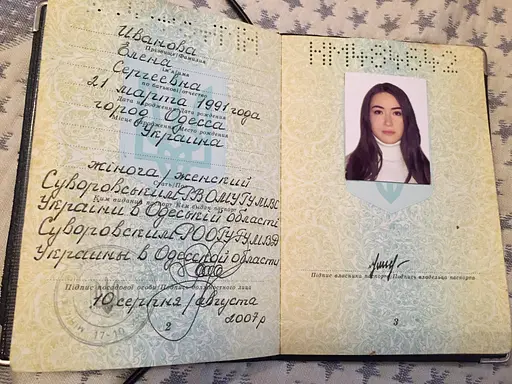 Иванова
Прізвище/Фамилия
Елена
Ім'я/Имя
Сергеевна
по батькові/отчество
21 марта 1991 года
Дата народження/Дата рождения
город Одесса
Місце народження/Место рождения
Украина
жіноча/женский
Суворовським РВ ОМУ ГУМВС
Ким виданий паспорт/Кем выдан паспорт
України в Одеській області
Суворовским РО ОГУ ГУМВД
Украины в Одесской области
Підпис посадової особи/Подпись должностного лица
10 серпня/августа
2007 р
2
Підпис власника паспорта/Подпись владельца паспорта
3